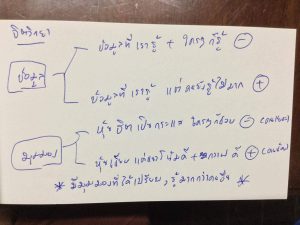 จิตวิทยา
ข้อมูลที่เรารู้ + ใครๆ ก็รู้ ⊖
ข้อมูล
ข้อมูลที่เรารู้ แต่คนยังรู้ไม่มาก ⊕
หุ้นฮิตเป็นกระแส ใครๆ ก็ชอบ ⊖
มุมมอง
หุ้นเงียบ แต่แนวโน้มดี + ดี ⊕
* มีมุมมองที่ได้เปรียบ, รู้มากกว่าคนอื่น *